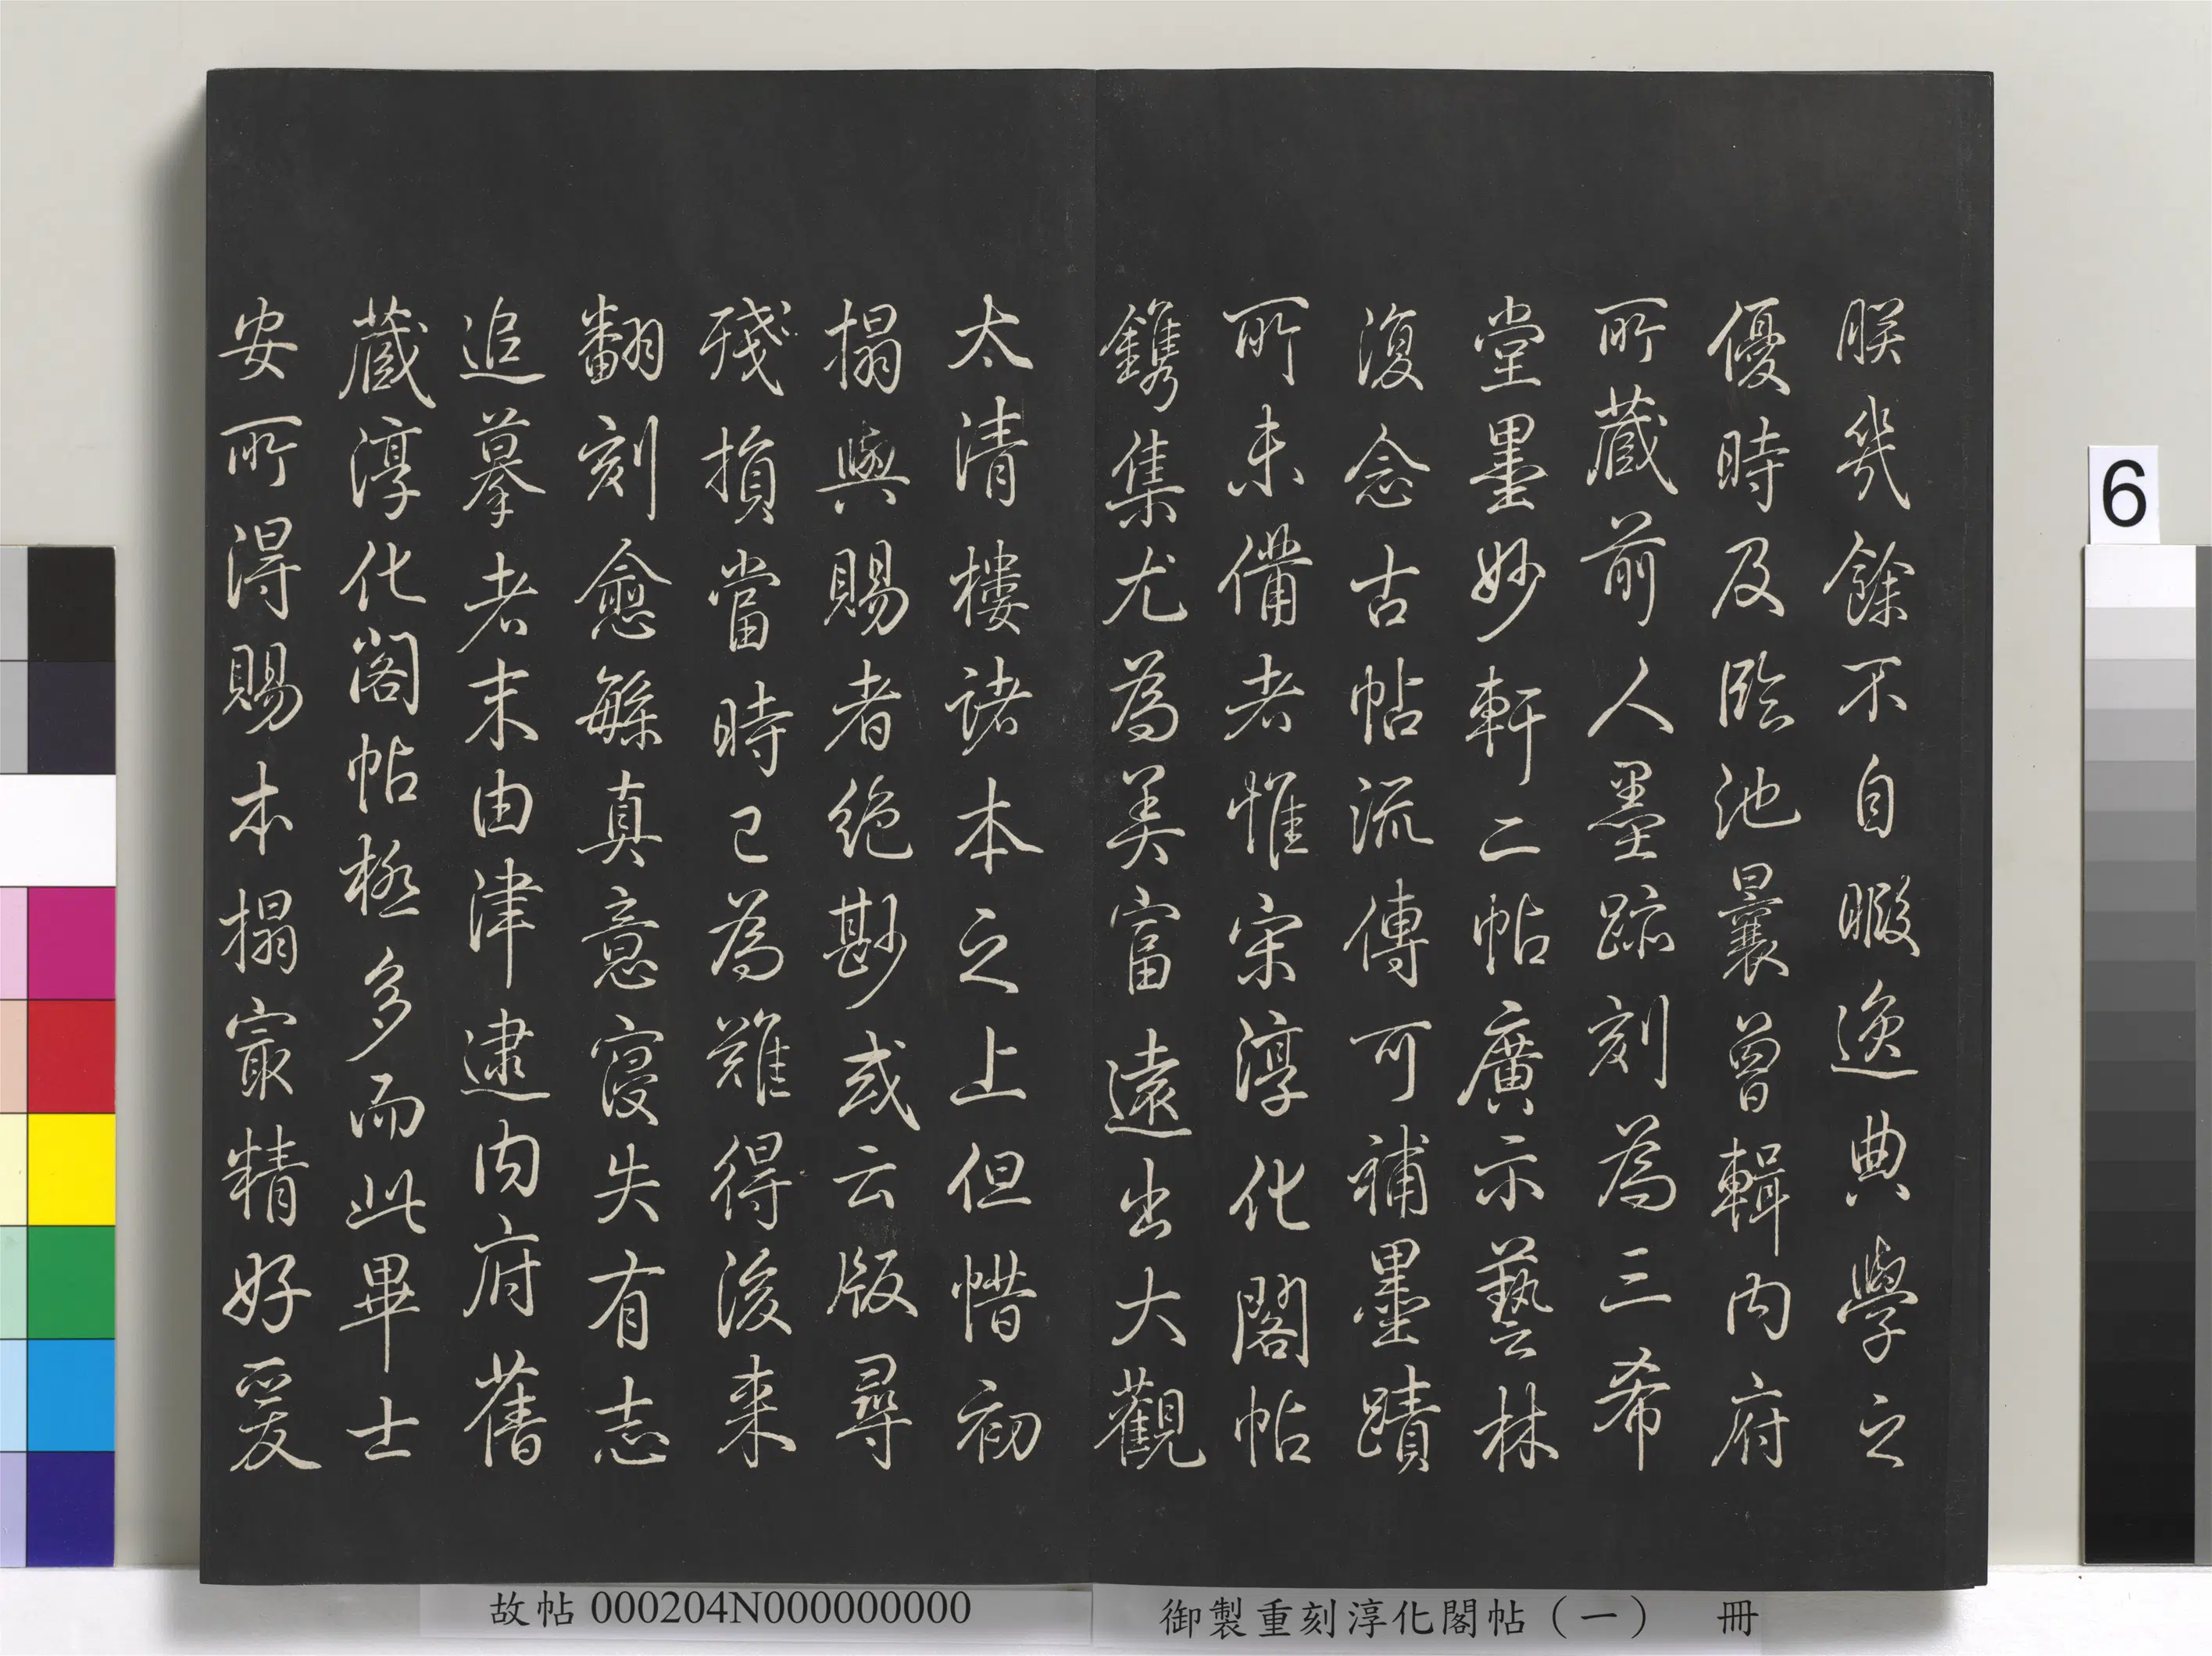 朕幾餘不自暇逸典學之
優時及臨池曩曾輯內府
所藏前人墨跡刻為三希
堂墨妙軒二帖廣示藝林
復念古帖流傳可補墨蹟
所未備者惟宋淳化閣帖
鐫集尤為美富遠出大觀
太清樓諸本之上但惜初
搨與賜者絕尟或云版尋
殘損當時已為難得後來
翻刻愈繇真意寖失有志
追摹者末由津逮內府舊
藏淳化閣帖極多而此畢士
安所得賜本搨冣精好爰
6
故帖 000204N000000000
御製重刻淳化閣帖（一） 冊